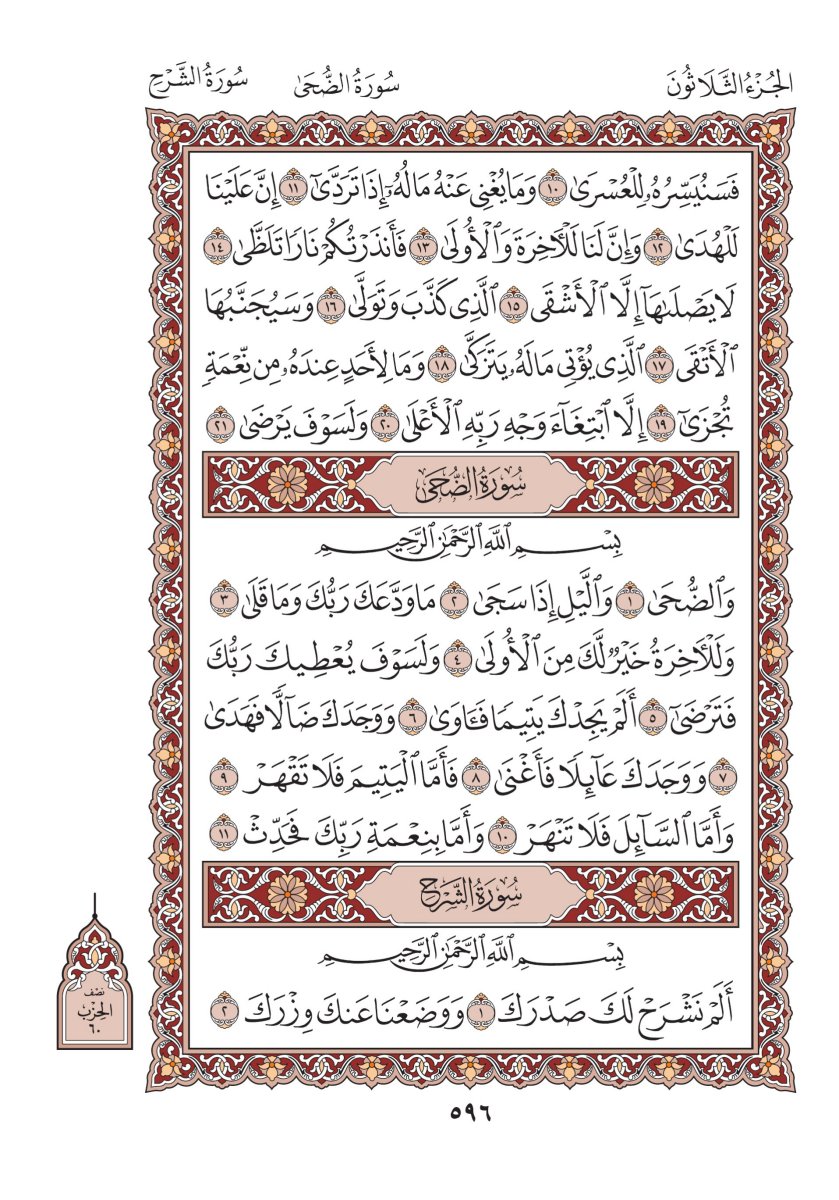 الجُزْءُ الثَّلَاثُونَ سُورَةُ الضُّحَىٰ سُورَةُ الشَّرْحِ
فَسَنُيَسِّرُهُۥ لِلْعُسْرَىٰ ١٠ وَمَا يُغْنِى عَنْهُ مَالُهُۥٓ إِذَا تَرَدَّىٰٓ ١١ إِنَّ عَلَيْنَا
لَلْهُدَىٰ ١٢ وَإِنَّ لَنَا لَلْـَٔاخِرَةَ وَٱلْأُولَىٰ ١٣ فَأَنذَرْتُكُمْ نَارًا تَلَظَّىٰ ١٤
لَا يَصْلَىٰهَآ إِلَّا ٱلْأَشْقَى ١٥ ٱلَّذِى كَذَّبَ وَتَوَلَّىٰ ١٦ وَسَيُجَنَّبُهَا
ٱلْأَتْقَى ١٧ ٱلَّذِى يُؤْتِى مَالَهُۥ يَتَزَكَّىٰ ١٨ وَمَا لِأَحَدٍ عِندَهُۥ مِن نِّعْمَةٍ
تُجْزَىٰٓ ١٩ إِلَّا ٱبْتِغَآءَ وَجْهِ رَبِّهِ ٱلْأَعْلَىٰ ٢٠ وَلَسَوْفَ يَرْضَىٰ ٢١
سُورَةُ الضُّحَىٰ
بِسْمِ ٱللَّهِ ٱلرَّحْمَٰنِ ٱلرَّحِيمِ
وَٱلضُّحَىٰ ١ وَٱلَّيْلِ إِذَا سَجَىٰ ٢ مَا وَدَّعَكَ رَبُّكَ وَمَا قَلَىٰ ٣
وَلَلْـَٔاخِرَةُ خَيْرٌ لَّكَ مِنَ ٱلْأُولَىٰ ٤ وَلَسَوْفَ يُعْطِيكَ رَبُّكَ
فَتَرْضَىٰٓ ٥ أَلَمْ يَجِدْكَ يَتِيمًا فَـَٔاوَىٰ ٦ وَوَجَدَكَ ضَآلًّا فَهَدَىٰ
٧ وَوَجَدَكَ عَآئِلًا فَأَغْنَىٰ ٨ فَأَمَّا ٱلْيَتِيمَ فَلَا تَقْهَرْ ٩
وَأَمَّا ٱلسَّآئِلَ فَلَا تَنْهَرْ ١٠ وَأَمَّا بِنِعْمَةِ رَبِّكَ فَحَدِّثْ ١١
سُورَةُ الشَّرْحِ
بِسْمِ ٱللَّهِ ٱلرَّحْمَٰنِ ٱلرَّحِيمِ
أَلَمْ نَشْرَحْ لَكَ صَدْرَكَ ١ وَوَضَعْنَا عَنكَ وِزْرَكَ ٢
نصف
الحِزْب
٦٠
٥٩٦